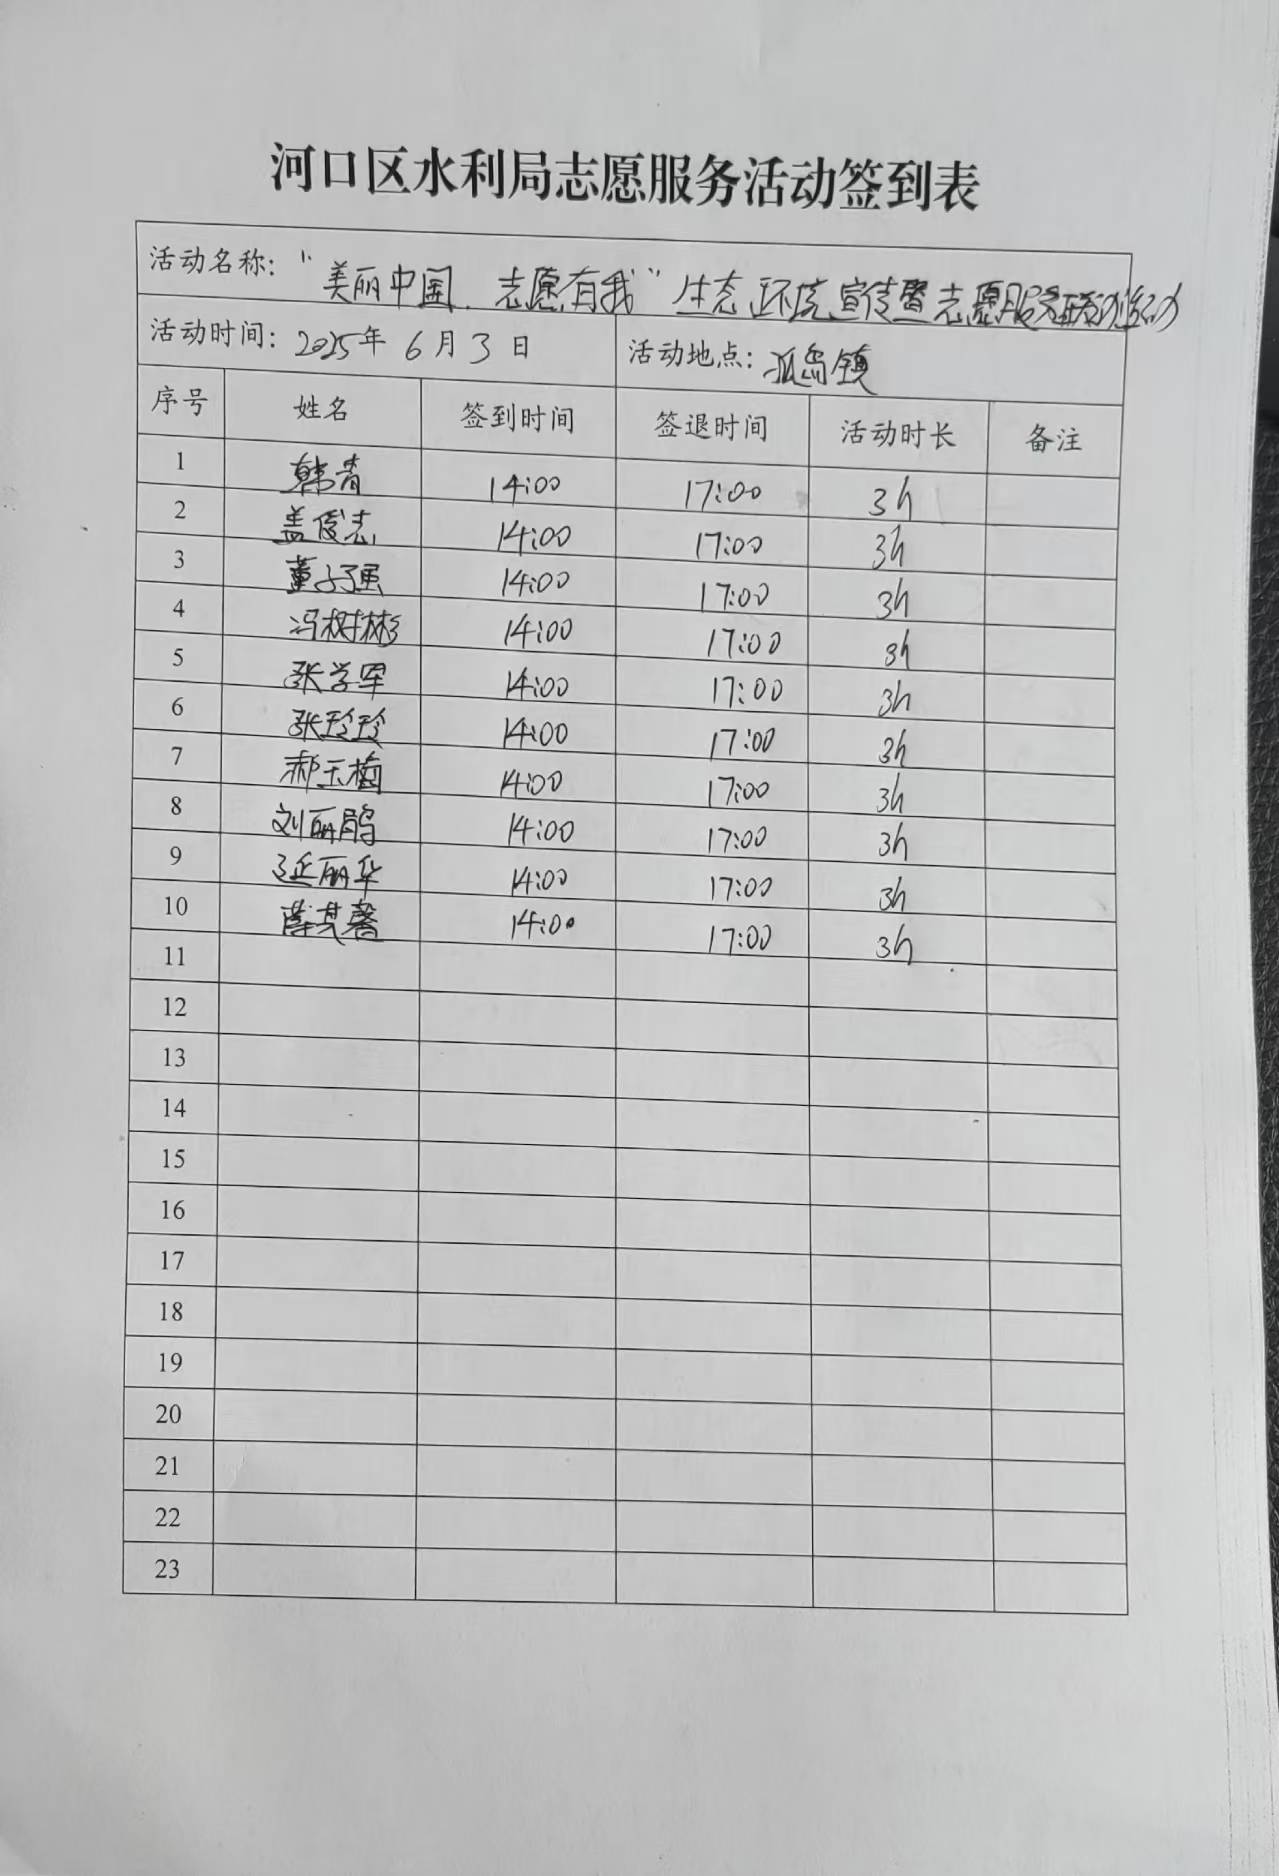 河口区水利局志愿服务活动签到表
活动名称："美丽中国，志愿有我"生态环境宣传暨志愿服务联动活动
活动时间：2025年6月3日 活动地点：孤岛镇
序号 姓名 签到时间 签退时间 活动时长 备注
1 韩青 14:00 17:00 3h
2 盖俊志 14:00 17:00 3h
3 董子强 14:00 17:00 3h
4 冯树彬 14:00 17:00 3h
5 张学军 14:00 17:00 3h
6 张玲玲 14:00 17:00 3h
7 郝玉梅 14:00 17:00 3h
8 刘丽鹃 14:00 17:00 3h
9 延丽华 14:00 17:00 3h
10 薛其馨 14:00 17:00 3h
11
12
13
14
15
16
17
18
19
20
21
22
23